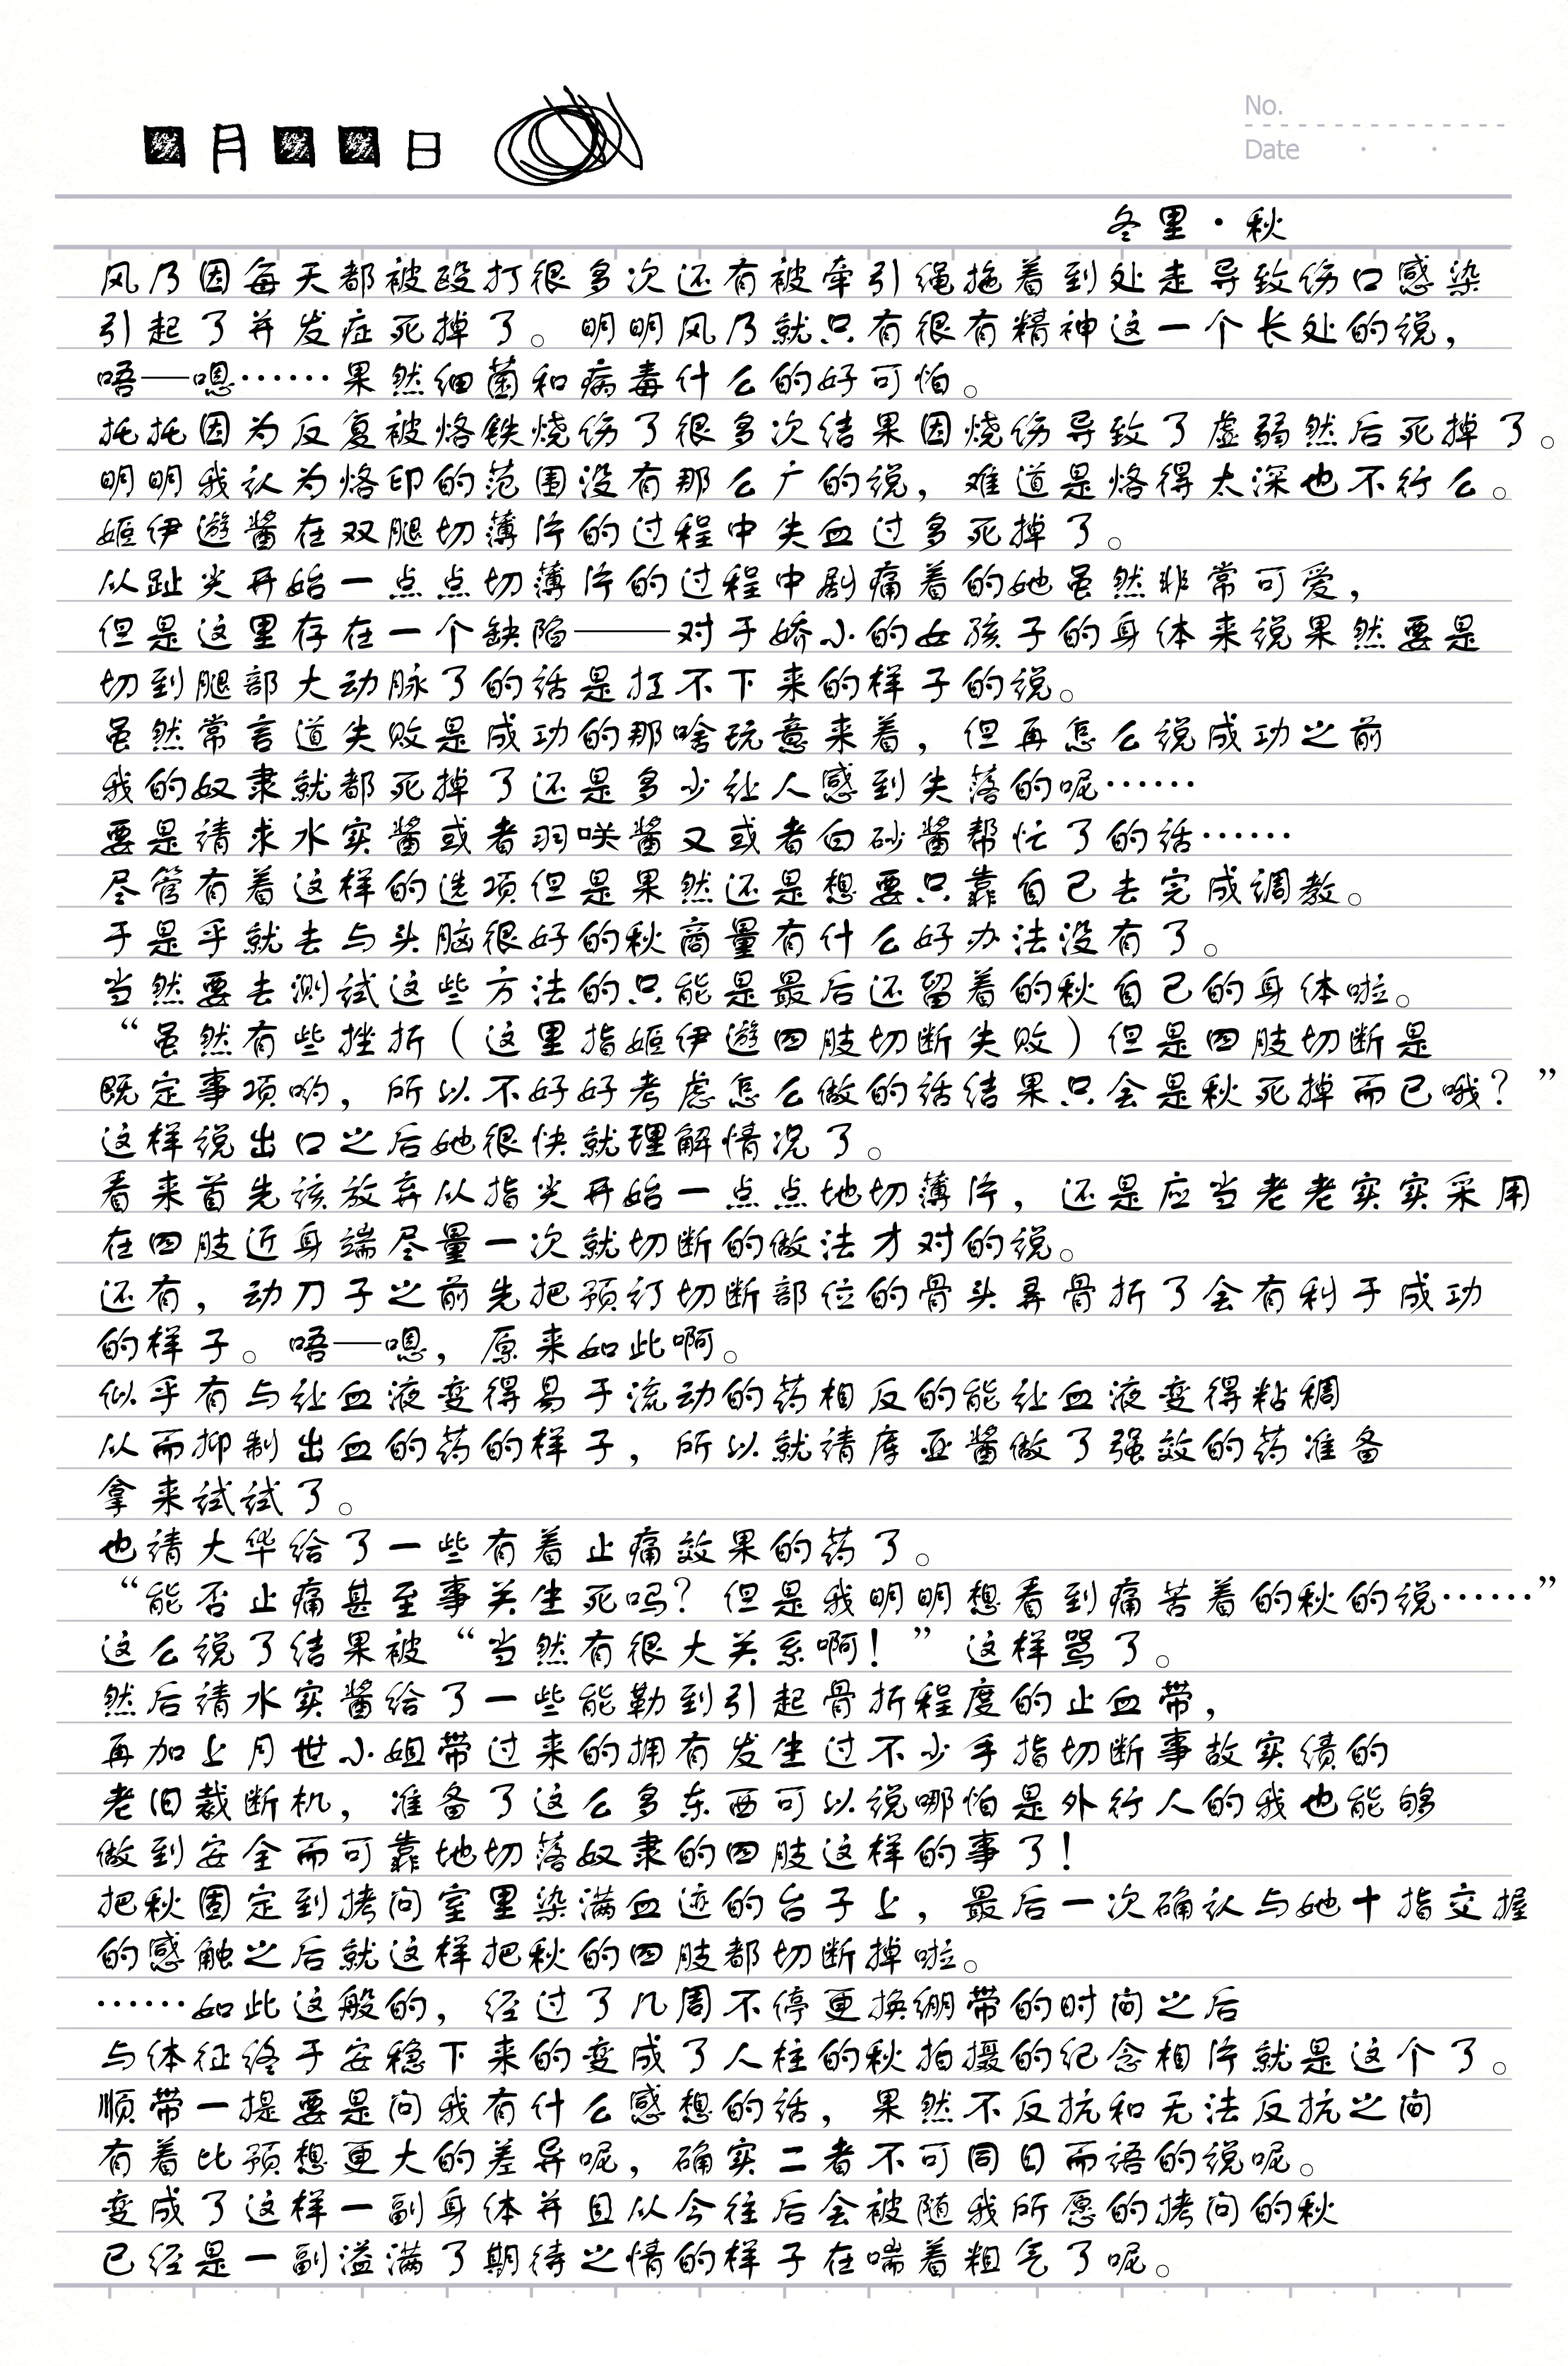 ■月■■日
No.
Date
冬里·秋
风乃因每天都被殴打很多次还有被牵引绳拖着到处走导致伤口感染
引起了并发症死掉了。明明风乃就只有很有精神这一个长处的说，
唔——嗯……果然细菌和病毒什么的好可怕。
托托因为反复被烙铁烧伤了很多次结果因烧伤导致了虚弱然后死掉了。
明明我认为烙印的范围没有那么广的说，难道是烙得太深也不行么。
姬伊遊酱在双腿切薄片的过程中失血过多死掉了。
从趾尖开始一点点切薄片的过程中剧痛着的她虽然非常可爱，
但是这里存在一个缺陷———对于娇小的女孩子的身体来说果然要是
切到腿部大动脉了的话是扛不下来的样子的说。
虽然常言道失败是成功的那啥玩意来着，但再怎么说成功之前
我的奴隶就都死掉了还是多少让人感到失落的呢……
要是请求水实酱或者羽咲酱又或者白砂酱帮忙了的话……
尽管有着这样的选项但是果然还是想要只靠自己去完成调教。
于是乎就去与头脑很好的秋商量有什么好办法没有了。
当然要去测试这些方法的只能是最后还留着的秋自己的身体啦。
“虽然有些挫折（这里指姬伊遊四肢切断失败）但是四肢切断是
既定事项哟，所以不好好考虑怎么做的话结果只会是秋死掉而已哦？”
这样说出口之后她很快就理解情况了。
看来首先该放弃从指尖开始一点点地切薄片，还是应当老老实实采用
在四肢近身端尽量一次就切断的做法才对的说。
还有，动刀子之前先把预订切断部位的骨头弄骨折了会有利于成功
的样子。唔——嗯，原来如此啊。
似乎有与让血液变得易于流动的药相反的能让血液变得粘稠
从而抑制出血的药的样子，所以就请库亚酱做了强效的药准备
拿来试试了。
也请大华给了一些有着止痛效果的药了。
“能否止痛甚至事关生死吗？但是我明明想看到痛苦着的秋的说……”
这么说了结果被“当然有很大关系啊！”这样骂了。
然后请水实酱给了一些能勒到引起骨折程度的止血带，
再加上月世小姐带过来的拥有发生过不少手指切断事故实绩的
老旧裁断机，准备了这么多东西可以说哪怕是外行人的我也能够
做到安全而可靠地切落奴隶的四肢这样的事了！
把秋固定到拷问室里染满血迹的台子上，最后一次确认与她十指交握
的感触之后就这样把秋的四肢都切断掉啦。
……如此这般的，经过了几周不停更换绷带的时间之后
与体征终于安稳下来的变成了人柱的秋拍摄的纪念相片就是这个了。
顺带一提要是问我有什么感想的话，果然不反抗和无法反抗之间
有着比预想更大的差异呢，确实二者不可同日而语的说呢。
变成了这样一副身体并且从今往后会被随我所愿的拷问的秋
已经是一副溢满了期待之情的样子在喘着粗气了呢。